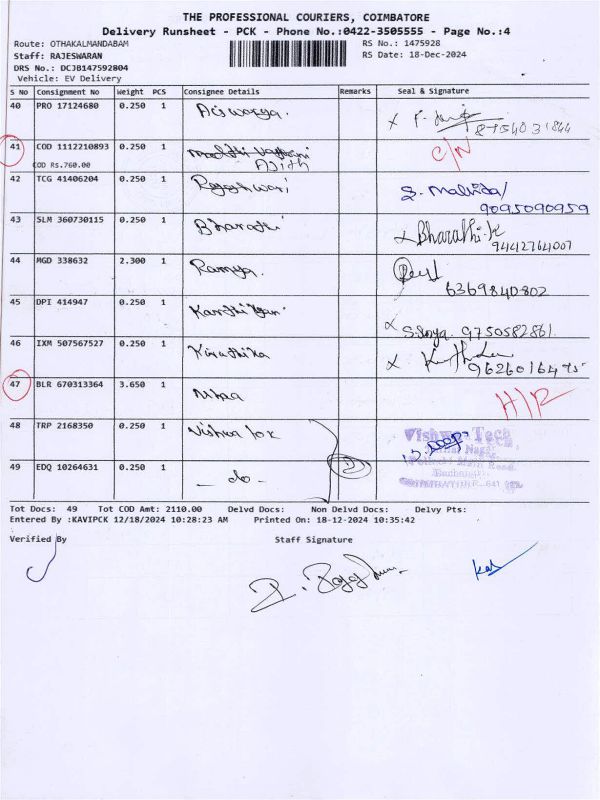 THE PROFESSIONAL COURIERS, COIMBATORE
Delivery Runsheet - PCK - Phone No.:0422-3505555 - Page No.:4
Route: OTHAKALMANDABAM
RS No.: 1475928
Staff: RAJESWARAN
RS Date: 18-Dec-2024
DRS No.: DCJB147592804
Vehicle: EV Delivery
S No Consignment No Weight PCS Consignee Details Remarks Seal & Signature
40 PRO 17124680 0.250 1 Aiswarya.
8754031844
41 COD 1112210893 0.250 1 C/N
COD Rs.760.00 Ajith
42 TCG 41406204 0.250 1 Rajeshwari
9095090959
43 SLM 360730115 0.250 1 Bharathi Bharathi.K
9442764007
44 MGD 338632 2.300 1 Ramya.
6369840802
45 DPI 414947 0.250 1 9750582861
46 IXM 507567527 0.250 1 Kiruthika
47 BLR 670313364 3.650 1
48 TRP 2168350 0.250 1 Vishwa Tech
49 EDQ 10264631 0.250 1 - do -
Tot Docs: 49 Tot COD Amt: 2110.00 Delvd Docs: Non Delvd Docs: Delvy Pts:
Entered By :KAVIPCK 12/18/2024 10:28:23 AM Printed On: 18-12-2024 10:35:42
Verified By Staff Signature